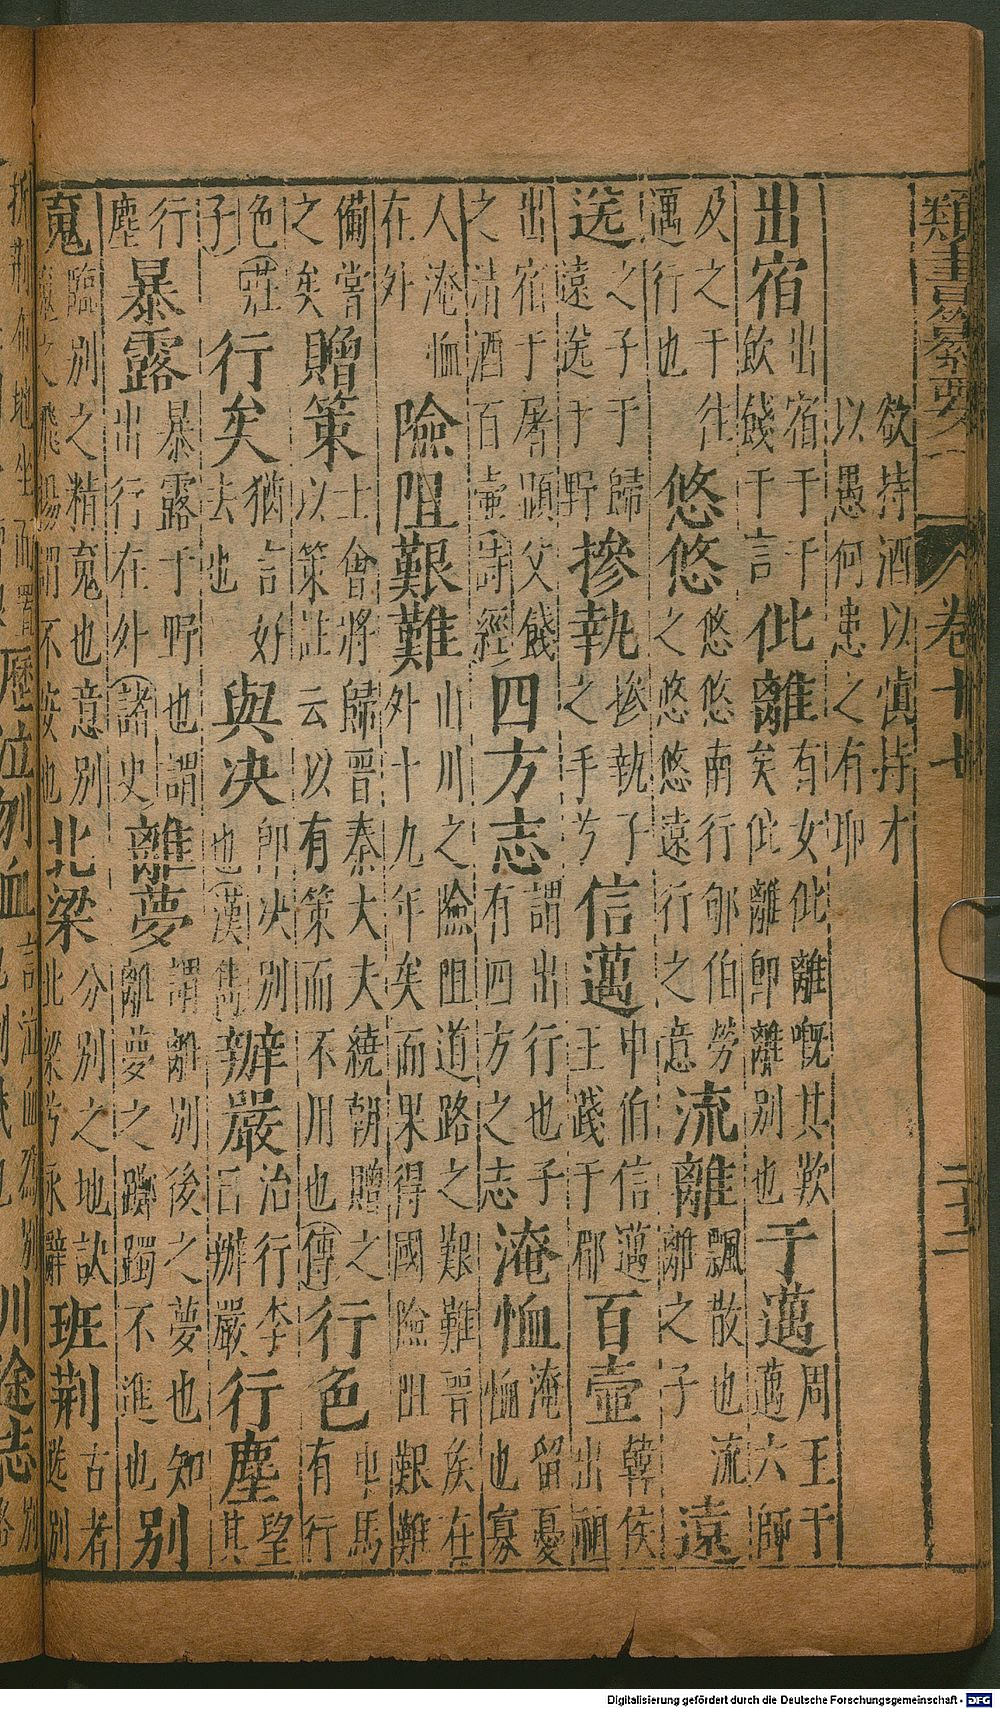 類書纂要 卷十七 二十二
欲持酒以慎持才
以愚何患之有耶
出宿 出宿于干飲餞于言 仳離 有女仳離嘅其歎矣仳離卽離別也 于邁 周王于邁六師
及之于往邁行也 悠悠 悠悠南行郇伯勞之悠悠遠行之意 流離 飄散也流離之子 遠
送 之子于歸遠送于野 摻執 摻執子之手兮 信邁 申伯信邁王踐于郿 百壺 韓侯出祖
出宿于屠顯父餞之清酒百壺詩經 四方志 謂出行也子有四方之志 淹恤 淹留憂恤也寡
人淹恤在外 險阻艱難 山川之險阻道路之艱難晉侯在外十九年矣而果得國險阻艱難
備嘗之矣 贈策 士會將歸晉秦大夫繞朝贈之以策註云以有策而不用也傳 行色 車馬有行
色莊子 行矣 猶言好去也 與決 卽決別也漢雋 辦嚴 治行李曰辦嚴 行塵 望其
行塵 暴露 暴露于野也謂出行在外諸史 離夢 謂離別後之夢也知離夢之躑躅不進也 別
䰟 臨別之精䰟也意別䰟之飛揚謂不 也 北梁 分別之地訣北梁兮永辭 班荆 古者 別
折荆布地坐而